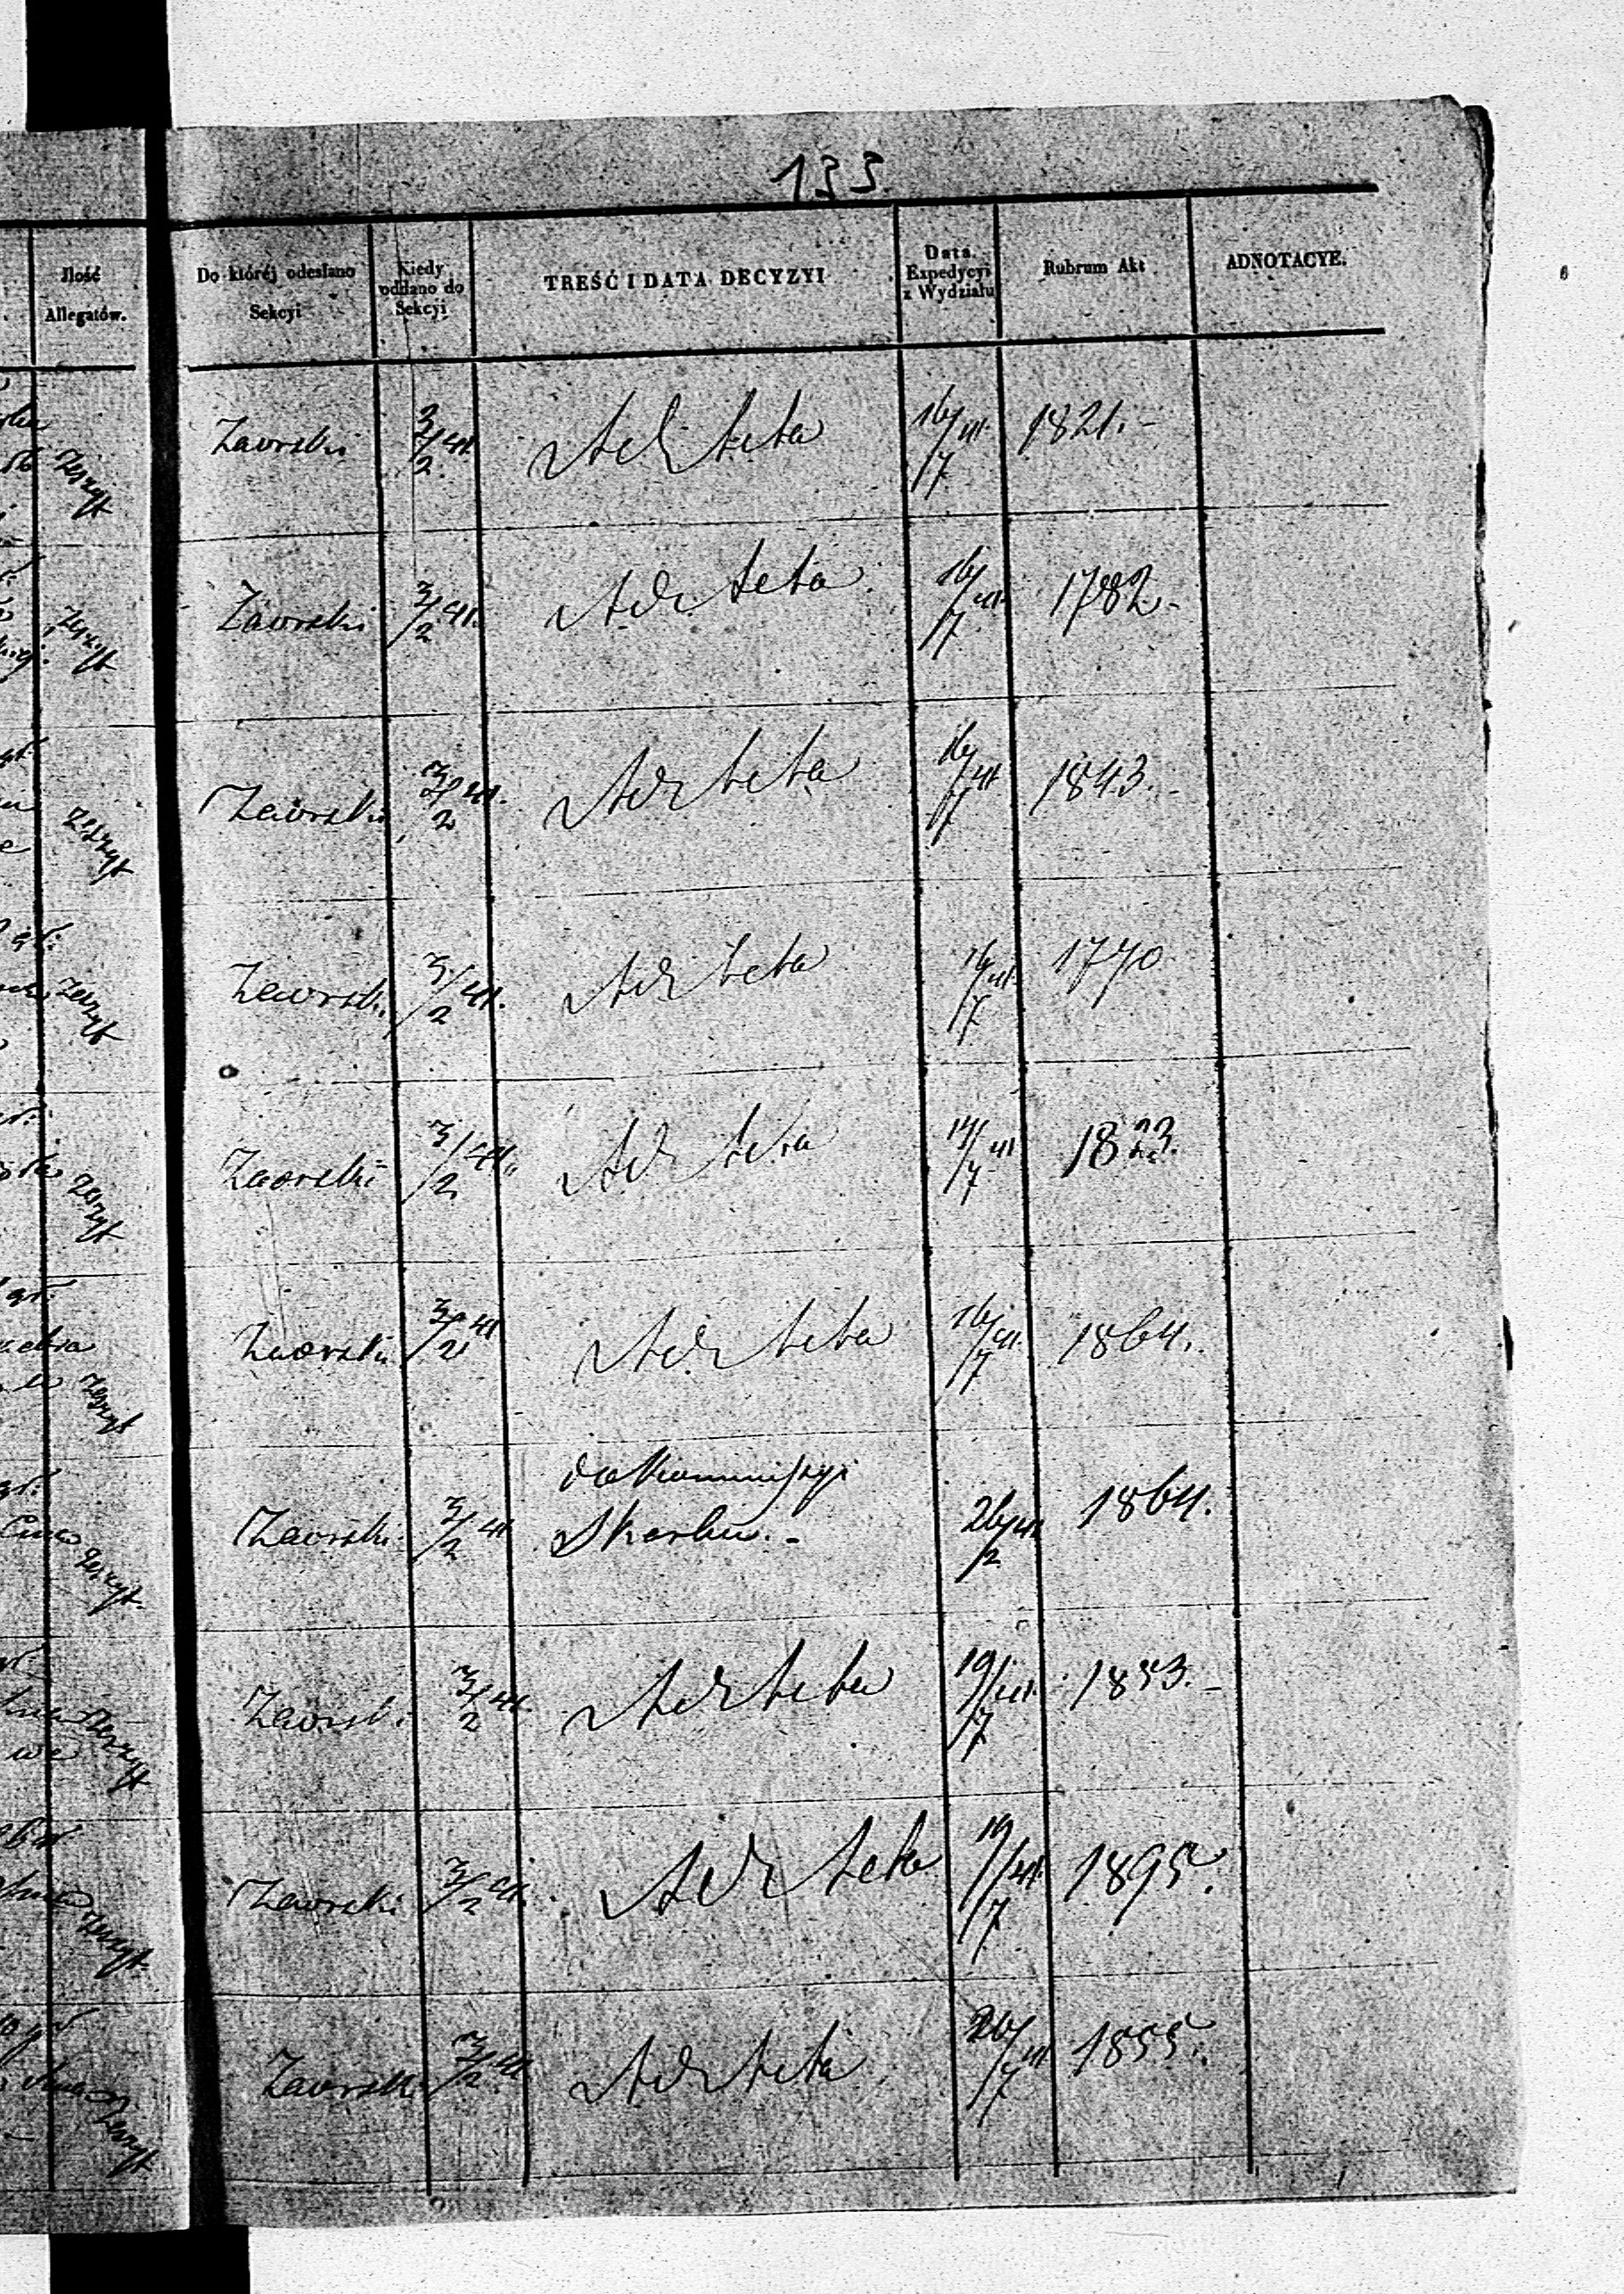 133.
Jlość
Allegatów.
Do któréj odesłano
Sekcyi
Kiedy
oddano do
Sekcyi
TREŚĆ I DATA DECYZYI
Data
Expedycyi
z Wydziału
Rubrum Akt
ADNOTACYE.
Zeszyt
Zaorski 3/2 41. Ad Acta 16/7 41. 1821.-
Zeszyt
Zaorski 3/2 41. Ad Acta 16/7 41. 1782-
Zeszyt
Zaorski 3/2 41. Ad Acta 16/7 41 1843.-
Zeszyt
Zaorski 3/2 41. Ad Acta 16/7 41. 1770
Zeszyt
Zaorski 3/2 41. Ad Acta 17/7 41 1823.
Zeszyt
Zaorski 3/2 41 Ad Acta 16/7 41. 1864.
Zeszyt
do Kommissyi
Zaorski 3/2 41 Skarbu.- 26/2 41 1864.
Zeszyt
Zaorski 3/2 41. Ad Acta 19/7 41. 1853.-
Zeszyt
Zaorski 3/2 41. Ad Acta 19/7 41. 1895.
Zeszyt
Zaorski 3/2 41 Ad Acta 26/7 41 1855.